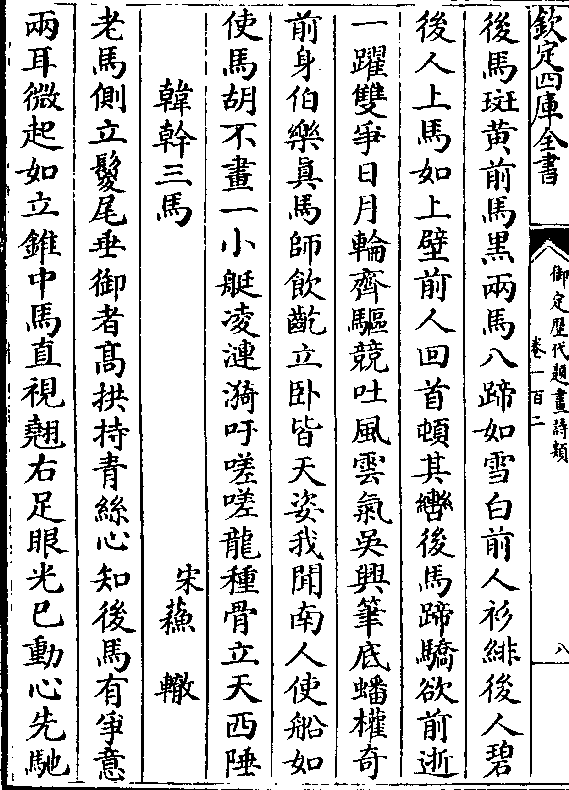 欽定四庫全書
御定歴代題畫詩類
卷一百二
八
後馬斑黄前馬黒兩馬八蹄如雪白前人衫緋後人碧
後人上馬如上壁前人回首頓其轡後馬蹄驕欲前逝
一躍雙爭日月輪齊驅競吐風雲氣吳興筆底蟠權竒
前身伯樂真馬師飲齕立卧皆天姿我聞南人使船如
使馬胡不畫一小艇凌漣漪吁嗟嗟龍種骨立天西陲
韓幹三馬
宋蘇轍
老馬側立鬉尾垂御者髙拱持青絲心知後馬有爭意
兩耳微起如立錐中馬直視翹右足眼光已動心先馳